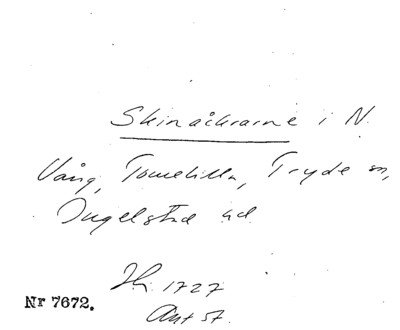 Skinåkrarne i N.
Vång, Tomelilla, Tryde sn,
Ingelstad hd.
Hr. 1727
Ant 57.
Nr 7672.